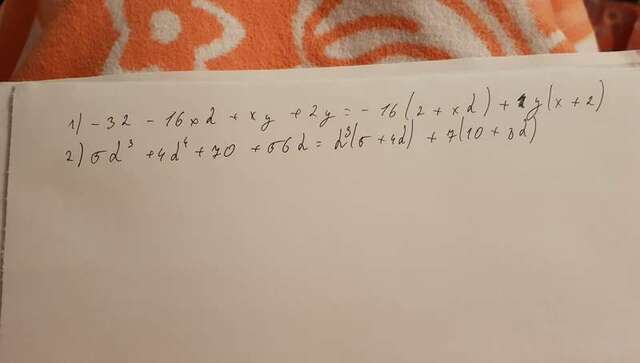 1) - 32 - 16xd + xy + 2y = - 16(2 + xd) + y(x + 2)
2) 5d³ + 4d⁴ + 70 + 56d = d³(5 + 4d) + 7(10 + 8d)